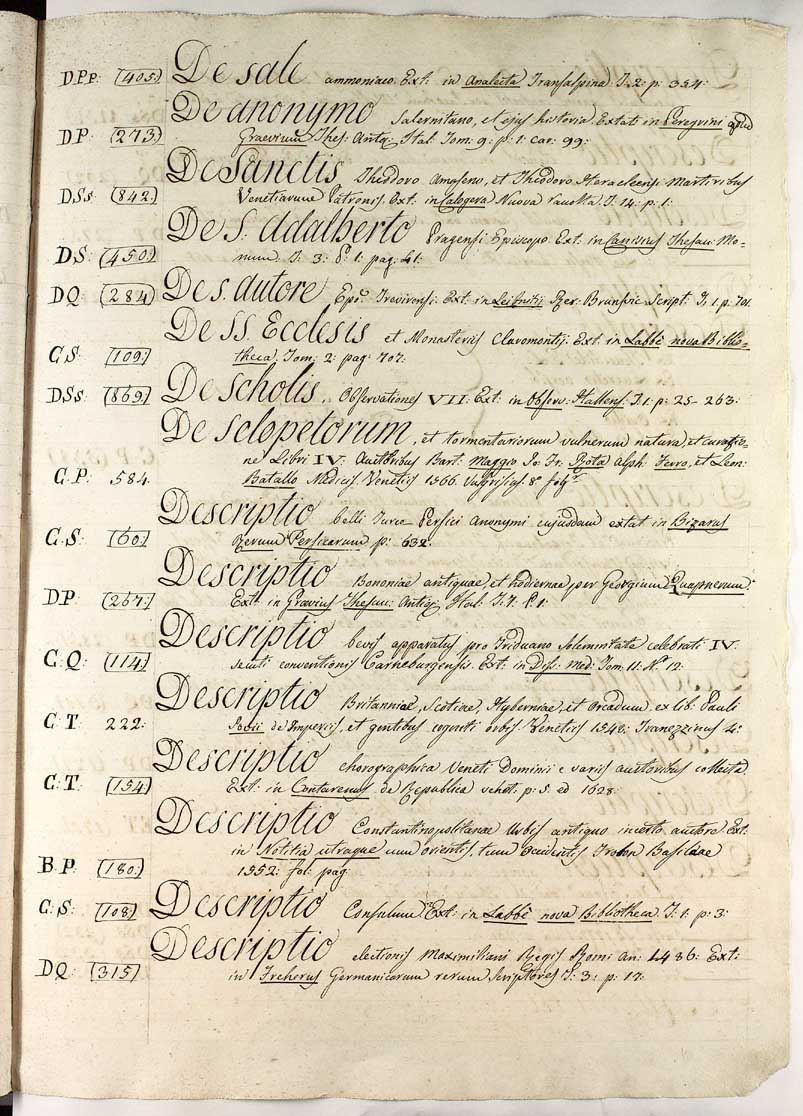 D.Pp. (405) De sale ammoniaco. Ext: in Analecta Transalpina T: 2: p: 354:
De anonymo Salernitano, et ejus historia. Extat in Peregrini apud
D.P: (273) Graevium Thes: Antiq: Ital: Tom: 9: p: 1: Car: 99:
De Sanctis Theodoro Amaseno, et Theodoro Heracleensi Martiribus
D.Ss: (842) Venetiarum Patronis. Ext: in Calogerà Nuova racolta T: 14: p: 1:
De S. Adalberto Pragensi Episcopo. Ext: in Canisius Thesau: Mo-
D.S: (450) num: T: 3: P: 1: pag: 41:
D.Q: (284) De s. Autore Epo. Trevirensi. Ext: in Leibnitii Rer: Brunsvic Script: T: 1. p: 701.
De SS. Ecclesis et Monasteriis Claromontis: Ext: in Labbè nova Biblio-
C.S: (109) theca. Tom: 2: pag: 707:
D.Ss: (869) De Scholis, Observationes VII: Ext: in Observ: Hallens: T: 1: p: 25-263:
De Sclopetorum, et tormentariorum vulnerum natura, et curatio-
ne Libri IV: Auctoribus Bart: Maggio Jo: Fr: Rota Alph: Ferro, et Leon:
C.P: 584. Batallo Medicis. Venetiis 1566. 8°
Descriptio belli Turco Persici Anonymi cujusdam extat in Bizarus
C.S: (60) Rerum Persicarum p: 632:
Descriptio Bononiae antiquae, et hodiernae, per Georgium
D.P: (267) Ext: in Graevius Thesau: Antiq: Ital: T: 7. P: 1:
Descriptio bevis apparatus pro Triduano Solemnitate celebrati IV:
C.Q: (114) seculi conventionis Carneburgensis. Ext: in Diss: Med: Tom: 11: N° 12:
Descriptio Britanniae, Scotiae, Hyberniae, et Orcadum, ex lib: Pauli
C.T: 222: Jovii de Imperiis, et gentibus cogniti orbis. Venetiis 1548: 4:
Descriptio chorographica Veneti Dominii e variis auctoribus collecta.
C.T: (154) Ext: in Contarenus de Republica venet: p: 5. ed 1628:
Descriptio Constantinopolitanae Urbis antiquo incerto auctore. Ext:
in Notitia utraque cum orientis, tum Occidentis Froben Basileae
B.P: (180) 1552: fol: pag:
C.S: (108) Descriptio Consulum. Ext: in Labbè nova Bibliotheca. T: 1: p: 3:
Descriptio electionis Maximiliani Regis Romi An: 1486: Ext:
D.Q: (315) in Freherus Germanicarum rerum Scriptores T: 3: p: 17: